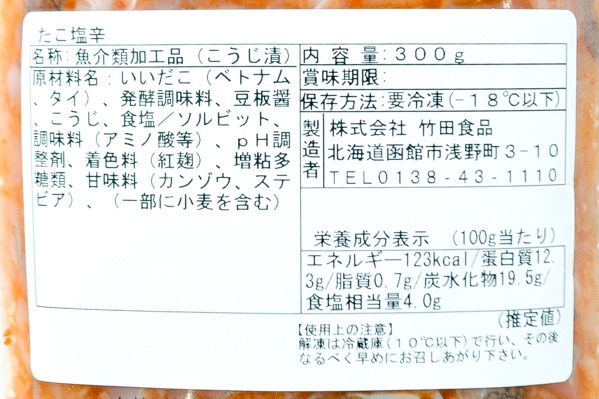 たこ塩辛
名称:魚介類加工品(こうじ漬)
原材料名:いいだこ(ベトナム
、タイ)、発酵調味料、豆板醤
、こうじ、食塩/ソルビット、
調味料(アミノ酸等)、pH調
整剤、着色料(紅麹)、増粘多
糖類、甘味料(カンゾウ、ステ
ビア)、(一部に小麦を含む)
内容量:300g
賞味期限:
保存方法:要冷凍(-18℃以下)
製造者
株式会社 竹田食品
北海道函館市浅野町3-10
TEL0138-43-1110
栄養成分表示 (100g当たり)
エネルギー123kcal/蛋白質12.
3g/脂質0.7g/炭水化物19.5g/
食塩相当量4.0g
(推定値)
【使用上の注意】
解凍は冷蔵庫(10℃以下)で行い、その後
なるべく早めにお召しあがり下さい。